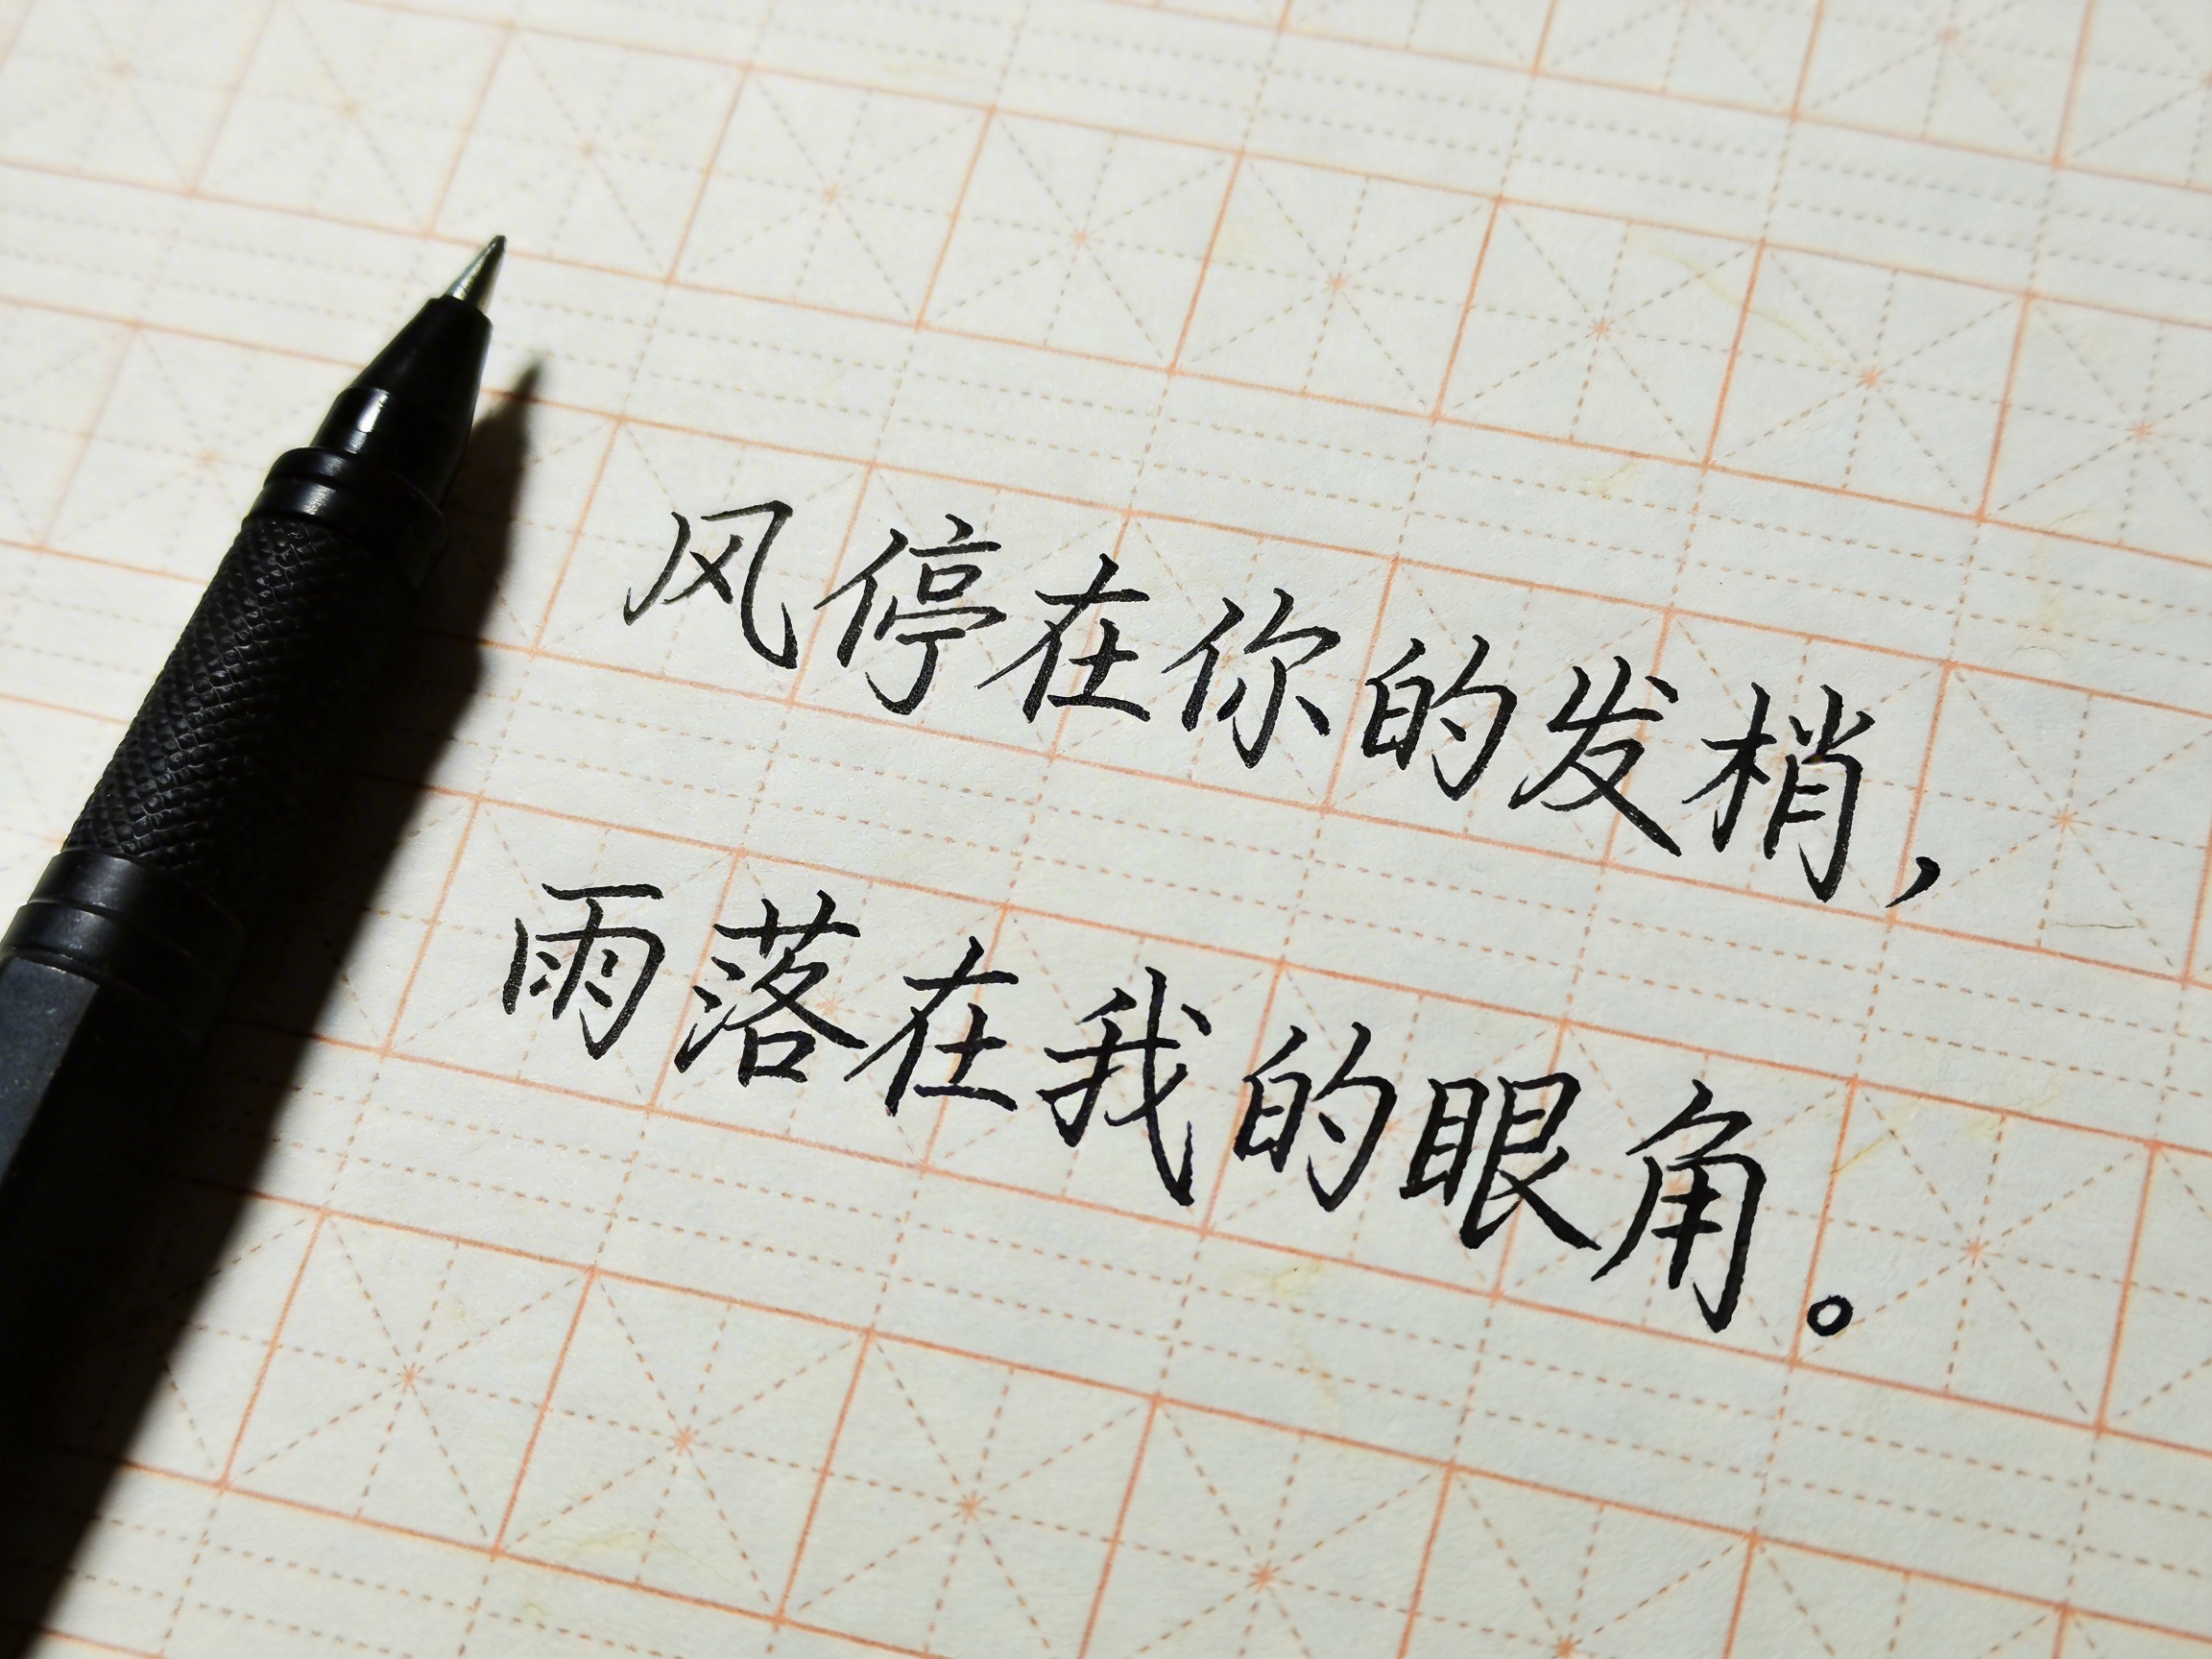 风停在你的发梢，
雨落在我的眼角。